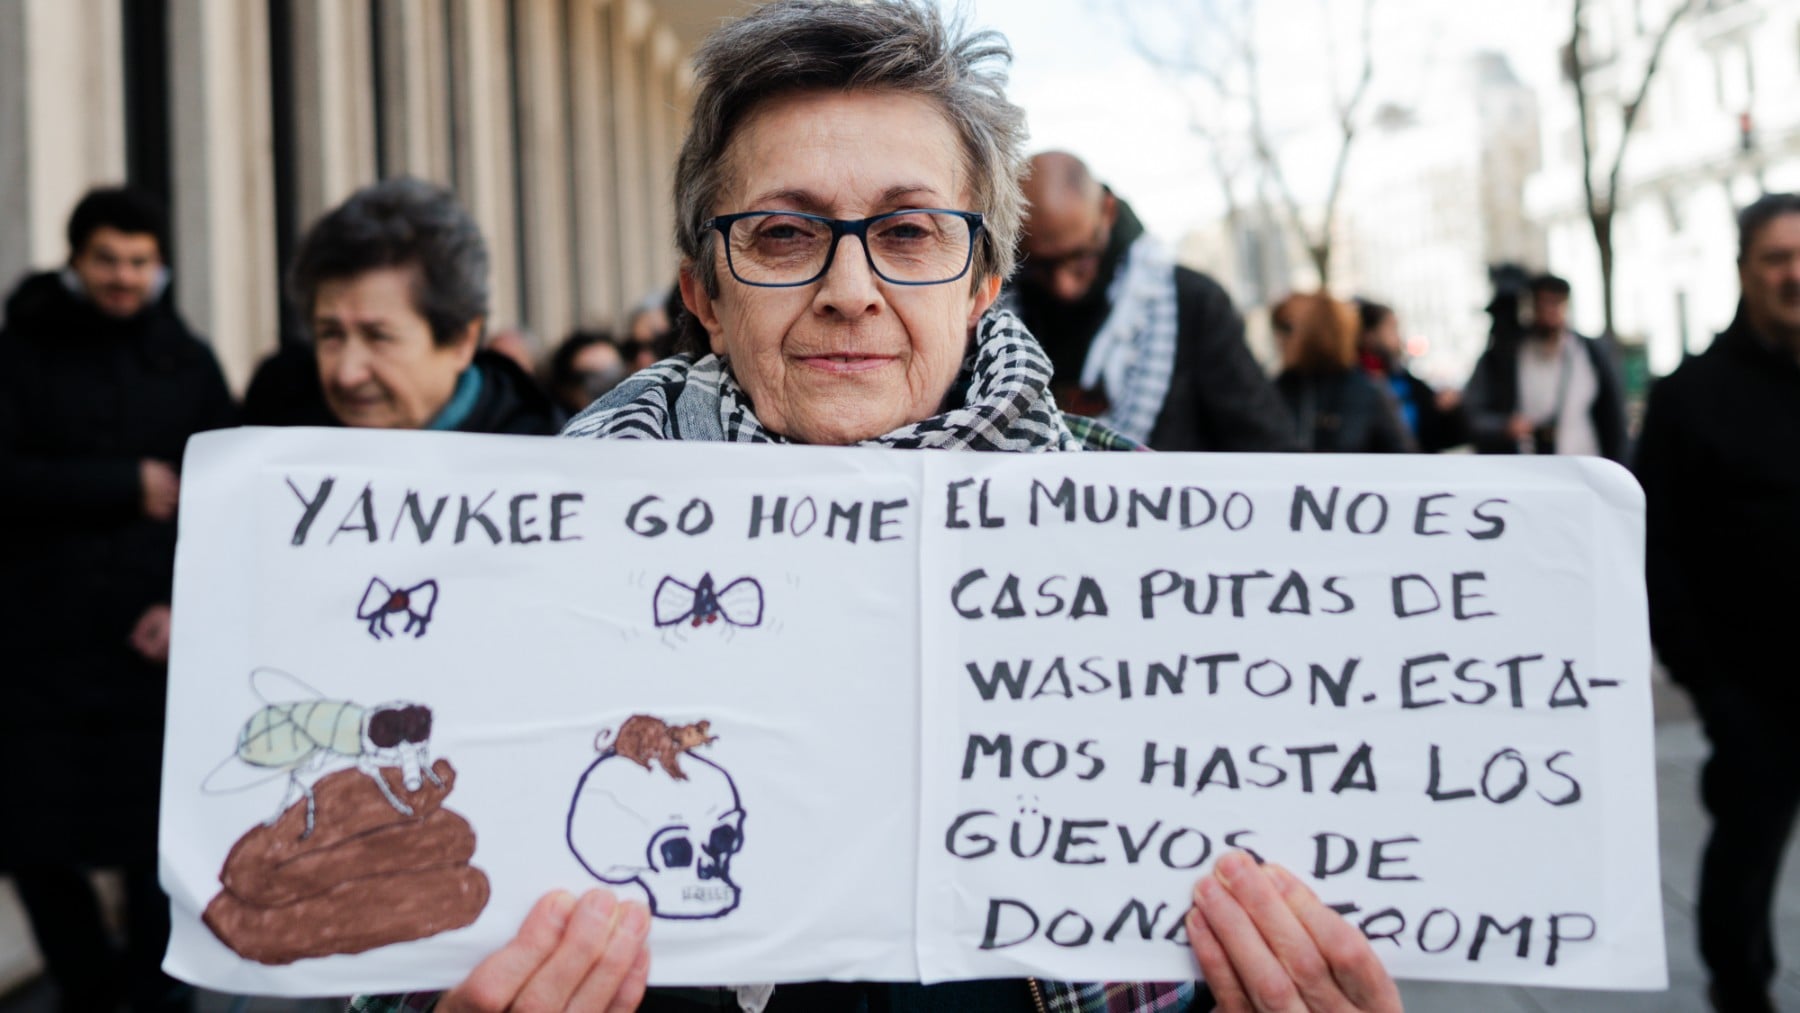 YANKEE GO HOME
EL MUNDO NO ES
CASA PUTAS DE
WASINTON. ESTA-
MOS HASTA LOS
GÜEVOS DE
DONA TROMP